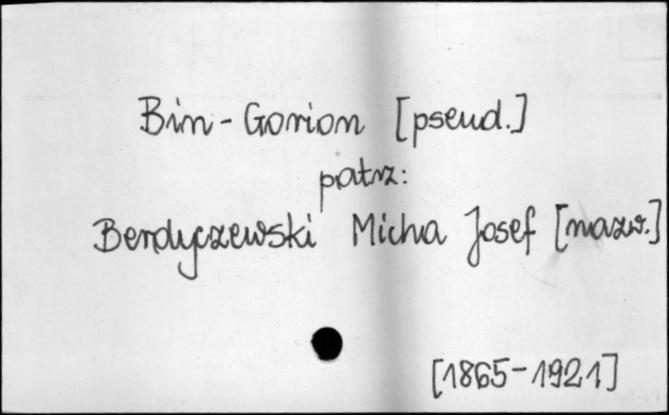 Bin-Gorion [pseud.]
patrz:
Berdyczewski Micha Josef [nazw.]
[1865-1921]